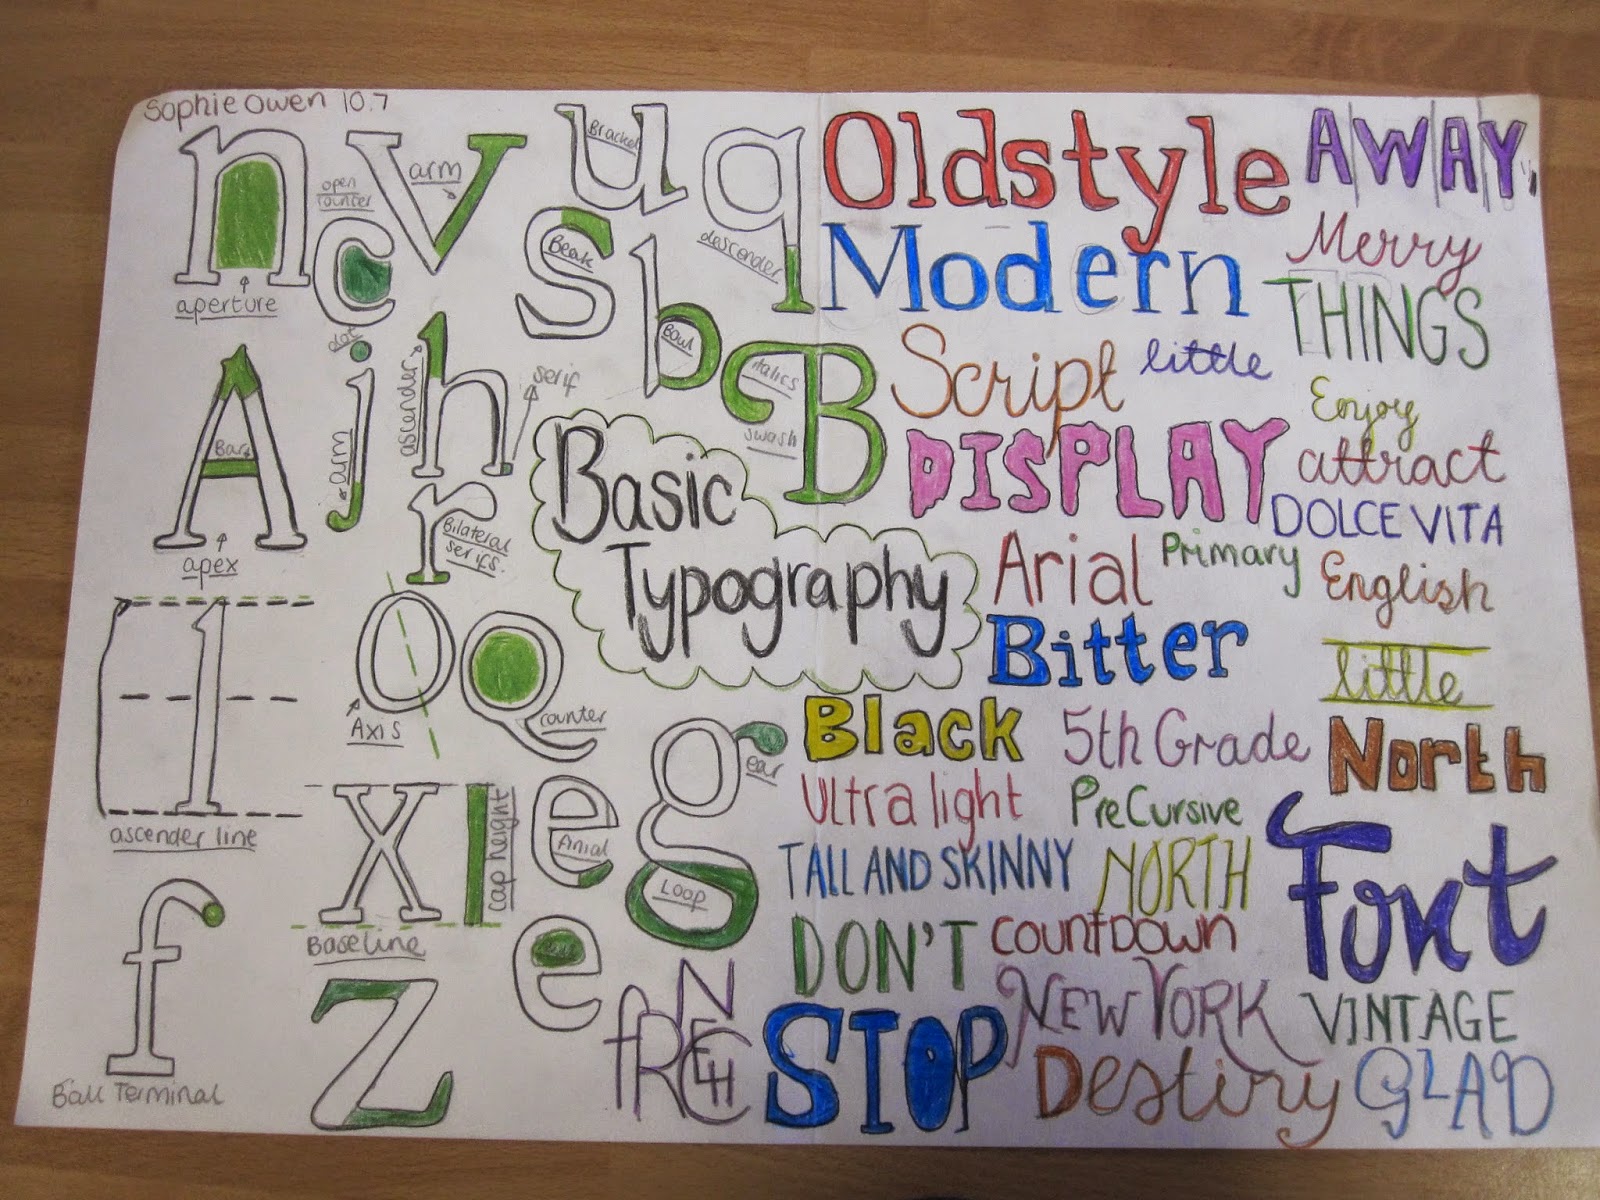 Sophie Owen 10.7
n
aperture
open
counter
c
v
arm
u
Bracket
q
descender
s
Beak
b
Bowl
A
Bar
apex
dot
j
arm
h
ascender
serif
r
Bilateral
serifs.
B
italics
swash
Basic
Typography
l
ascender line
O
Axis
Q
counter
g
ear
Loop
x
Baseline
cap height
e
f
Ball Terminal
z
e
Oldstyle
AWAY
Modern
Merry
THINGS
Script
little
Enjoy
DISPLAY
attract
DOLCE VITA
Arial
Primary
English
Bitter
little
Black
5th Grade
North
Ultra light
PreCursive
Font
TALL AND SKINNY
NORTH
DON'T
COUNTDOWN
FRENCH
STOP
NEW YORK
VINTAGE
Destiny
GLAD